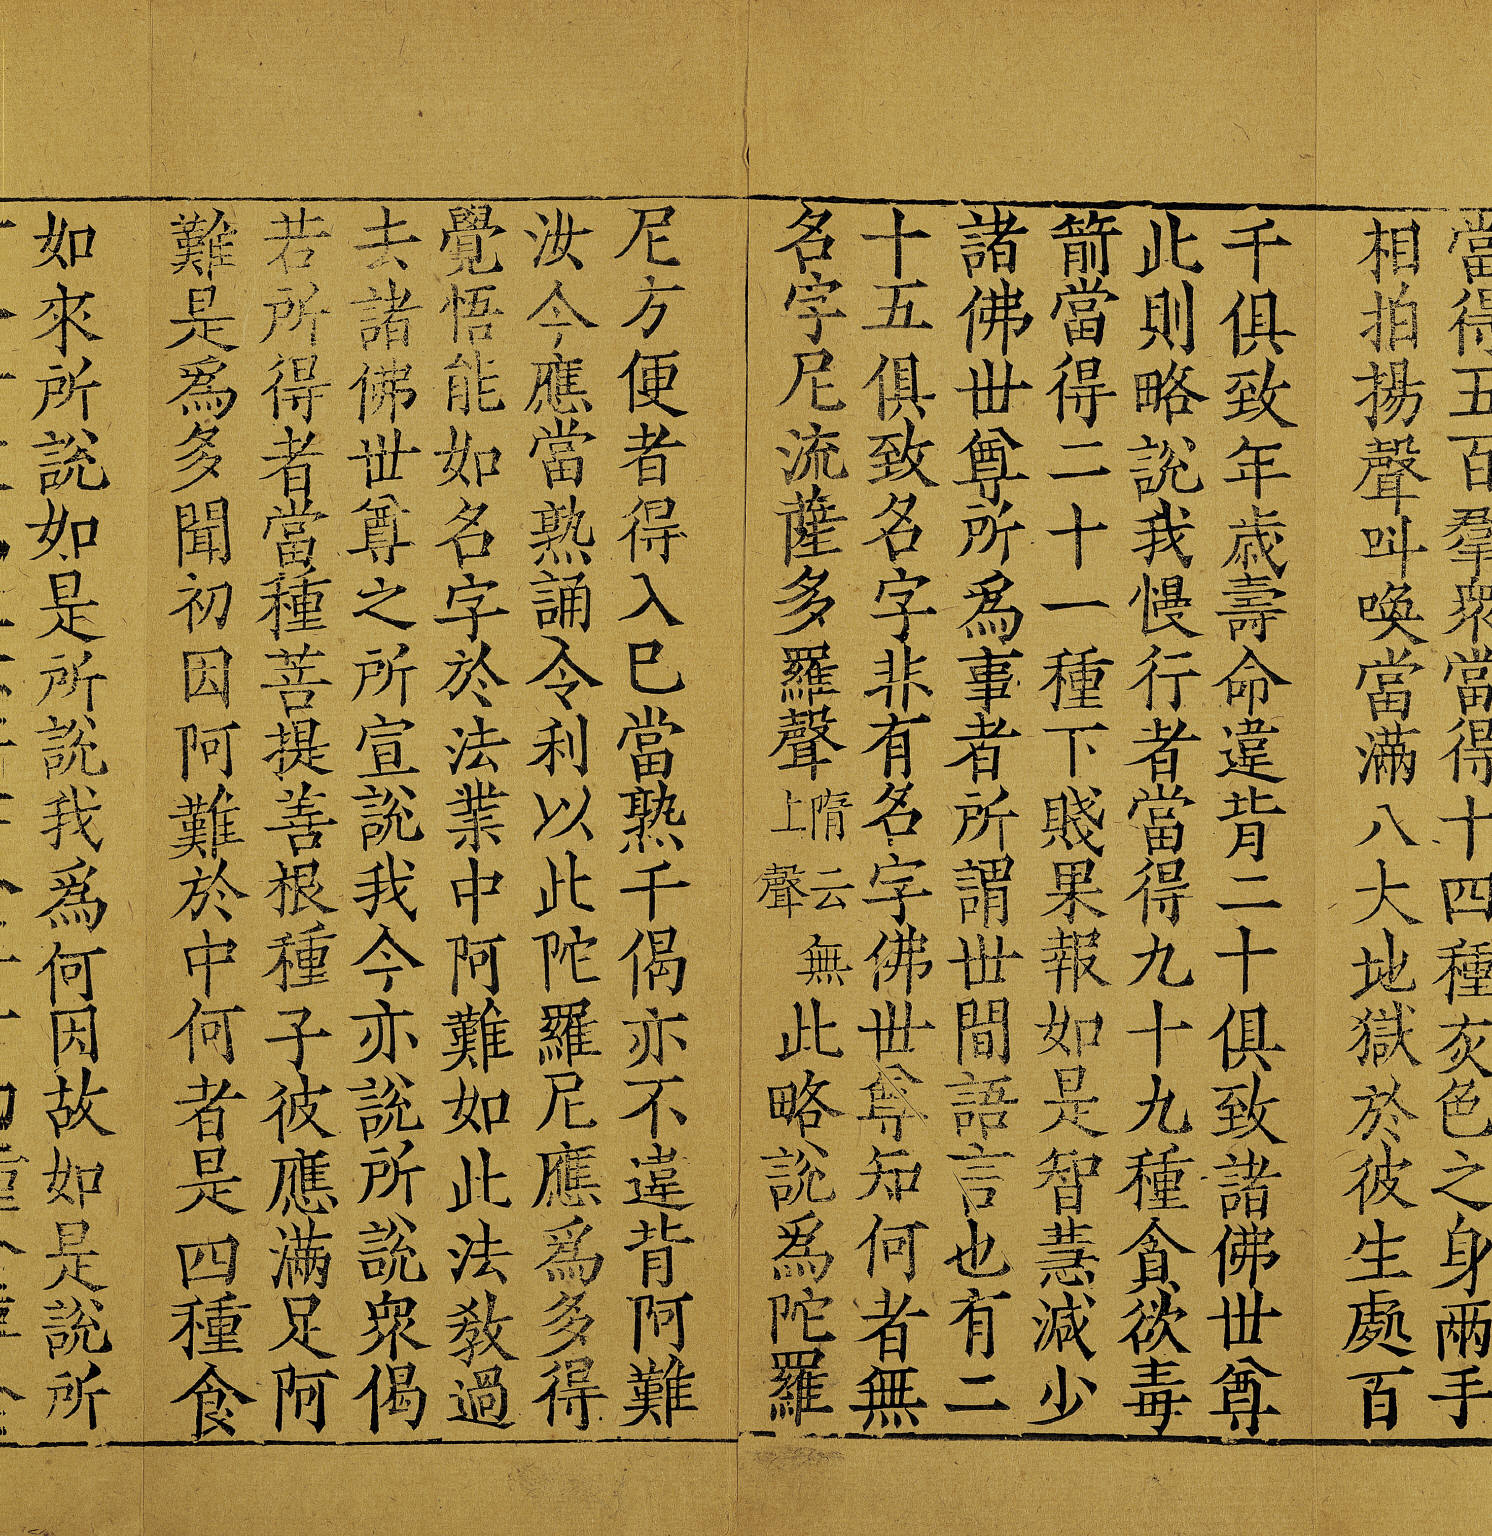 當得五百羣衆當得十四種灰色之身兩手
相拍揚聲叫喚當滿八大地獄於彼生處百
千俱致年歲壽命違背二十俱致諸佛世尊
此則略說我慢行者當得九十九種貪欲毒
箭當得二十一種下賤果報如是智慧減少
諸佛世尊所爲事者所謂世間語言也有二
十五俱致名字非有名字佛世尊知何者無
名字尼流薩多羅聲隋云無上聲此略說爲陀羅
尼方便者得入已當熟千偈亦不違背阿難
汝今應當熟誦令利以此陀羅尼應爲多得
覺悟能如名字於法業中阿難如此法教過
去諸佛世尊之所宣說我今亦說所說衆偈
若所得者當種菩提善根種子彼應滿足阿
難是爲多聞初因阿難於中何者是四種食
如來所說如是所說我爲何因故如是說所